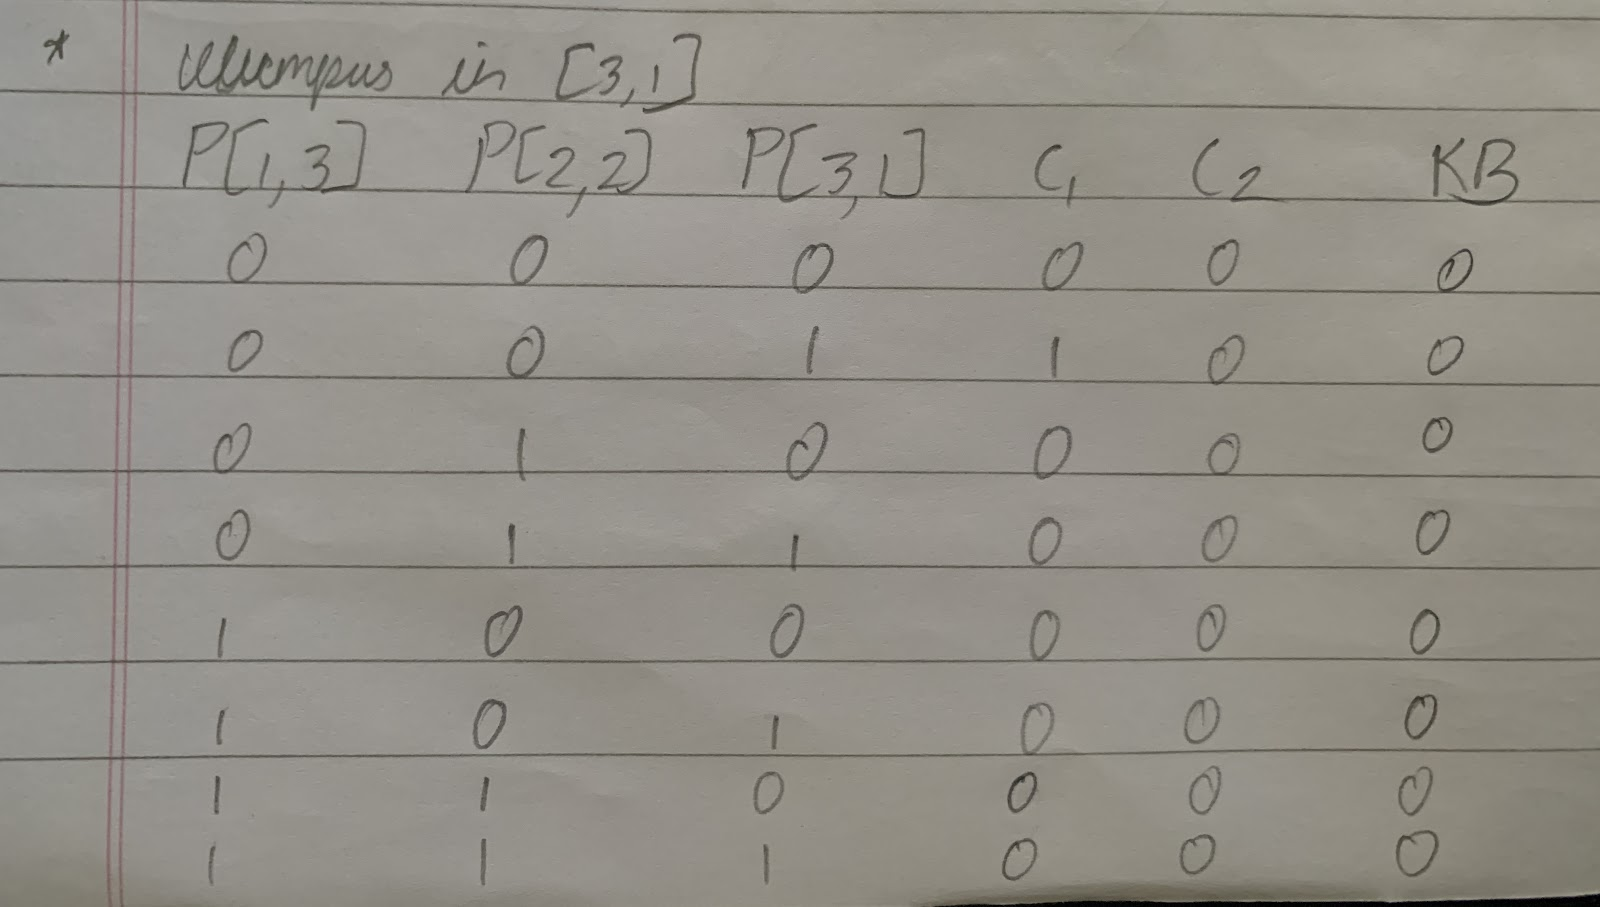 * Wumpus in [3,1]
P[1,3] P[2,2] P[3,1] C1 C2 KB
0 0 0 0 0 0
0 0 1 1 0 0
0 1 0 0 0 0
0 1 1 0 0 0
1 0 0 0 0 0
1 0 1 0 0 0
1 1 0 0 0 0
1 1 1 0 0 0